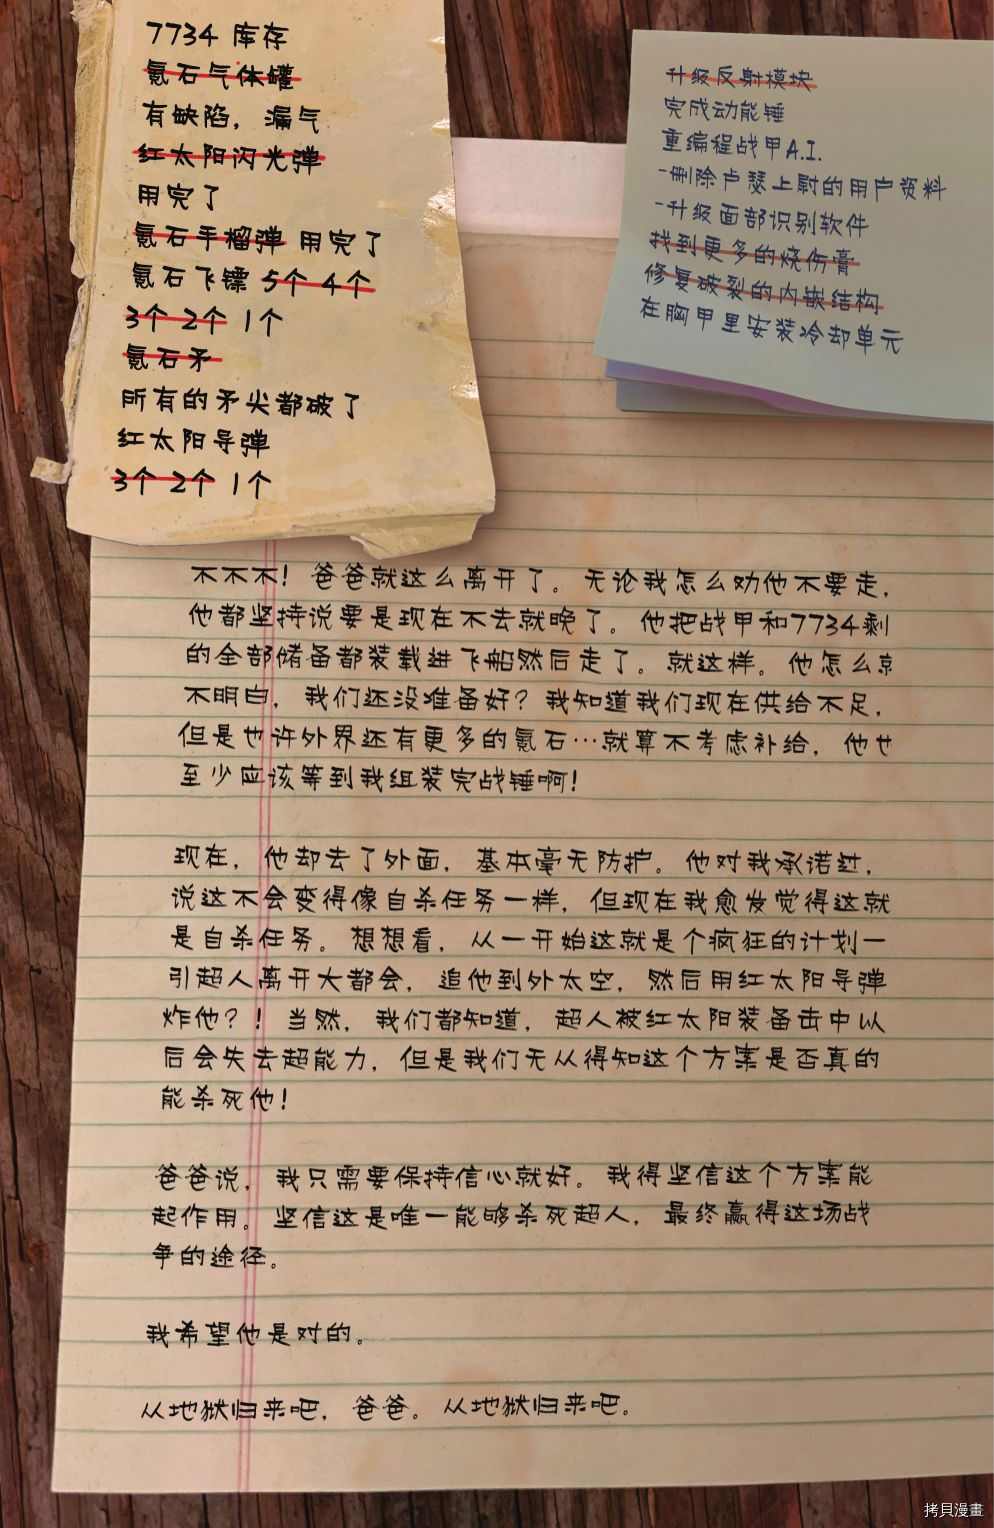 7734 库存
氪石气体罐
有缺陷，漏气
红太阳闪光弹
用完了
氪石手榴弹 用完了
氪石飞镖 5个 4个
3个 2个 1个
氪石矛
所有的矛尖都破了
红太阳导弹
3个 2个 1个
升级反射模块
完成动能锤
重编程战甲A.I.
-删除卢瑟上尉的用户资料
-升级面部识别软件
找到更多的烧伤膏
修复破裂的内嵌结构
在胸甲里安装冷却单元
不不不！爸爸就这么离开了。无论我怎么劝他不要走，
他都坚持说要是现在不去就晚了。他把战甲和7734剩
的全部储备都装载进飞船然后走了。就这样。他怎么就
不明白，我们还没准备好？我知道我们现在供给不足，
但是也许外界还有更多的氪石…就算不考虑补给，他也
至少应该等到我组装完战锤啊！
现在，他却去了外面，基本毫无防护。他对我承诺过，
说这不会变得像自杀任务一样，但现在我愈发觉得这就
是自杀任务。想想看，从一开始这就是个疯狂的计划—
引超人离开大都会，追他到外太空，然后用红太阳导弹
炸他？！当然，我们都知道，超人被红太阳装备击中以
后会失去超能力，但是我们无从得知这个方案是否真的
能杀死他！
爸爸说，我只需要保持信心就好。我得坚信这个方案能
起作用。坚信这是唯一能够杀死超人，最终赢得这场战
争的途径。
我希望他是对的。
从地狱归来吧，爸爸。从地狱归来吧。
拷貝漫畫